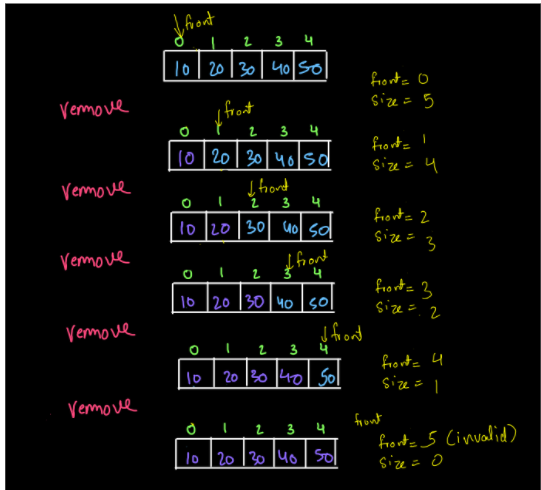 front
0 1 2 3 4
10 20 30 40 50
front = 0
size = 5
remove
front
0 1 2 3 4
10 20 30 40 50
front = 1
size = 4
remove
front
0 1 2 3 4
10 20 30 40 50
front = 2
size = 3
remove
front
0 1 2 3 4
10 20 30 40 50
front = 3
size = 2
remove
front
0 1 2 3 4
10 20 30 40 50
front = 4
size = 1
remove
front
0 1 2 3 4
10 20 30 40 50
front = 5 (invalid)
size = 0